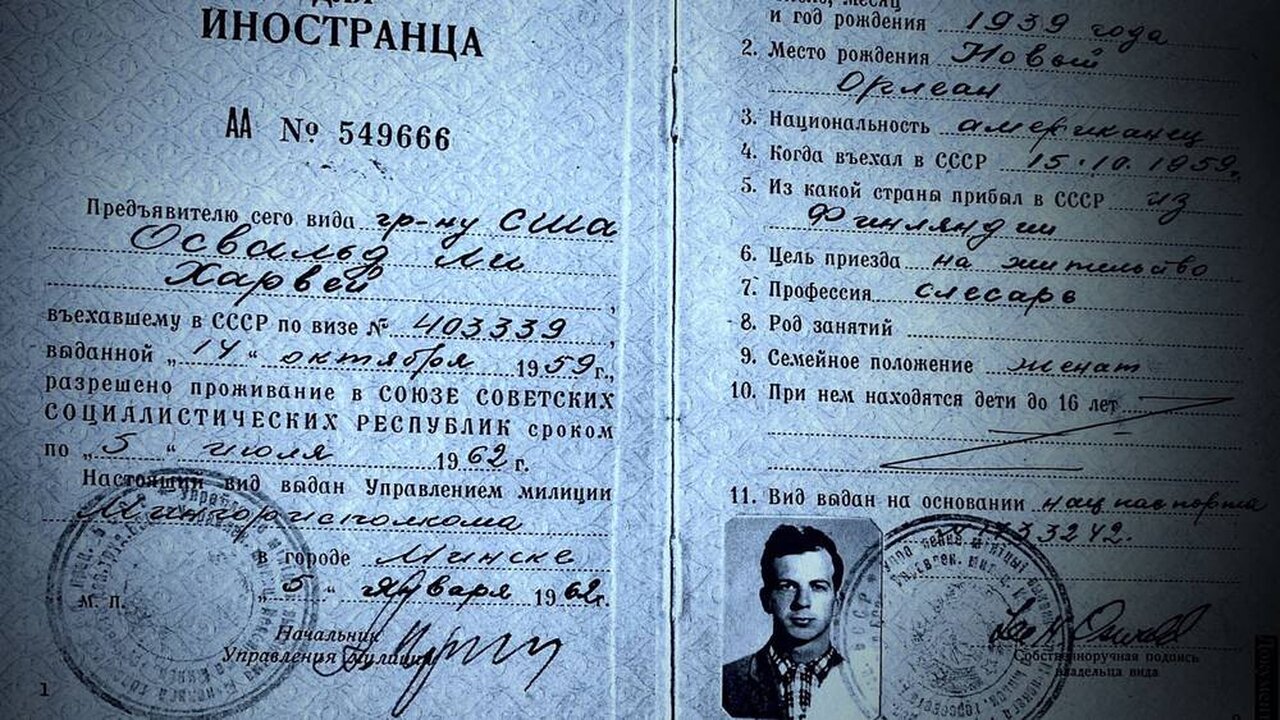 ИНОСТРАНЦА
АА № 549666
Предъявителю сего вида гр-ну США
Освальд Ли
Харвей
въехавшему в СССР по визе № 403339,
выданной „14“ октября 1959 г.,
разрешено проживание в СОЮЗЕ СОВЕТСКИХ
СОЦИАЛИСТИЧЕСКИХ РЕСПУБЛИК сроком
по „5“ июля 1962 г.
Настоящий вид выдан Управлением милиции
Мингорисполкома
в городе Минске
„5“ января 1962 г.
М. П.
Начальник
Управления милиции
1
и год рождения 1939 года
2. Место рождения Новый
Орлеан
3. Национальность американец
4. Когда въехал в СССР 15.10.1959г.
5. Из какой страны прибыл в СССР из
Финляндии
6. Цель приезда на жительство
7. Профессия слесарь
8. Род занятий
9. Семейное положение женат
10. При нем находятся дети до 16 лет
11. Вид выдан на основании нац паспорта
733242.
Собственноручная подпись
владельца вида